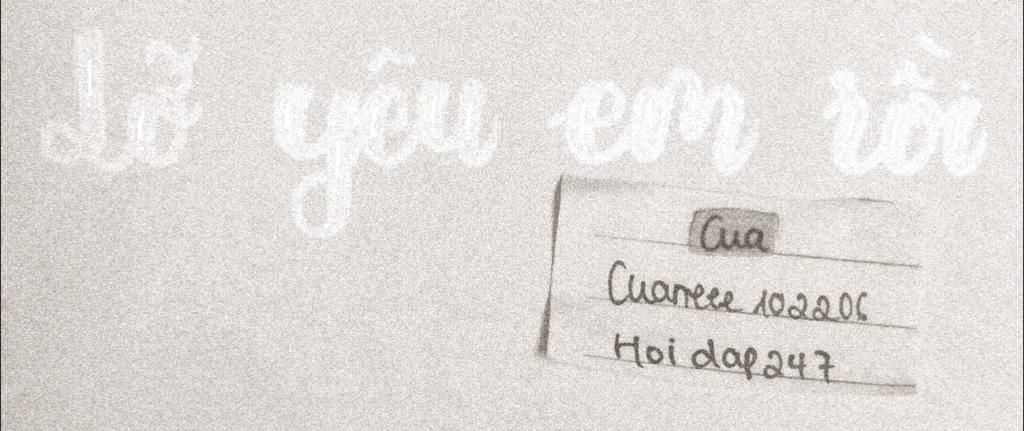 Lỡ yêu em rồi
Cua
Cuarreee 102206
Hoidap247